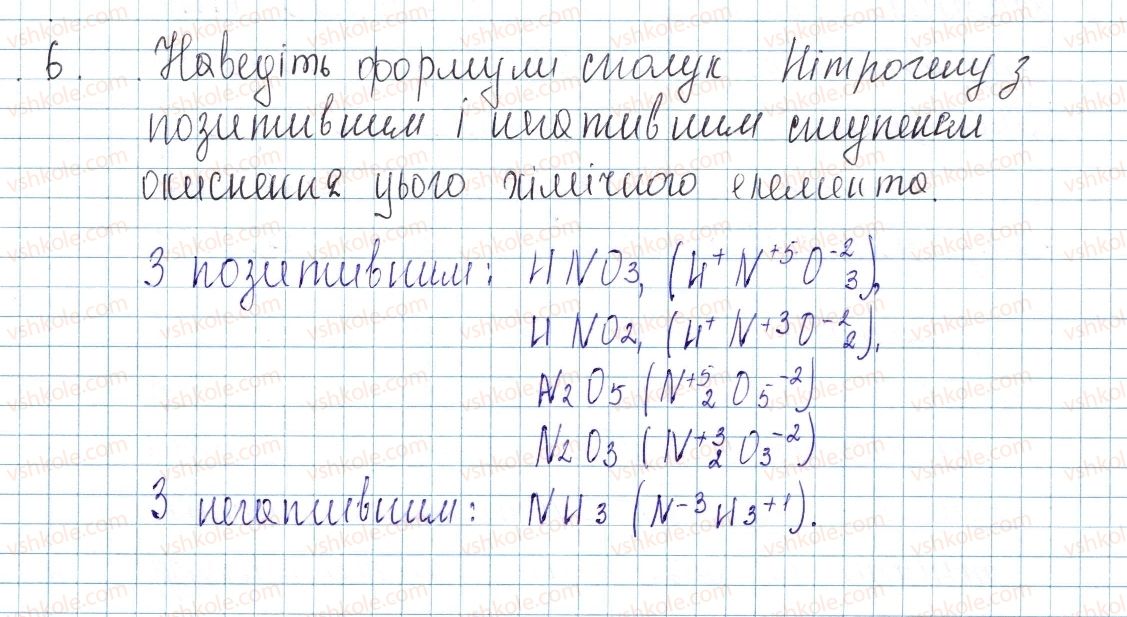 6. Наведіть формули сполук Нітрогену з
позитивним і негативним ступенем
окиснення цього хімічного елемента.
З позитивним: HNO3, (H⁺N⁺⁵O⁻²₃),
HNO2, (H⁺N⁺³O⁻²₂).
N2O5 (N⁺⁵₂O₅⁻²)
N2O3 (N⁺³₂O₃⁻²)
З негативним: NH3 (N⁻³H₃⁺¹).